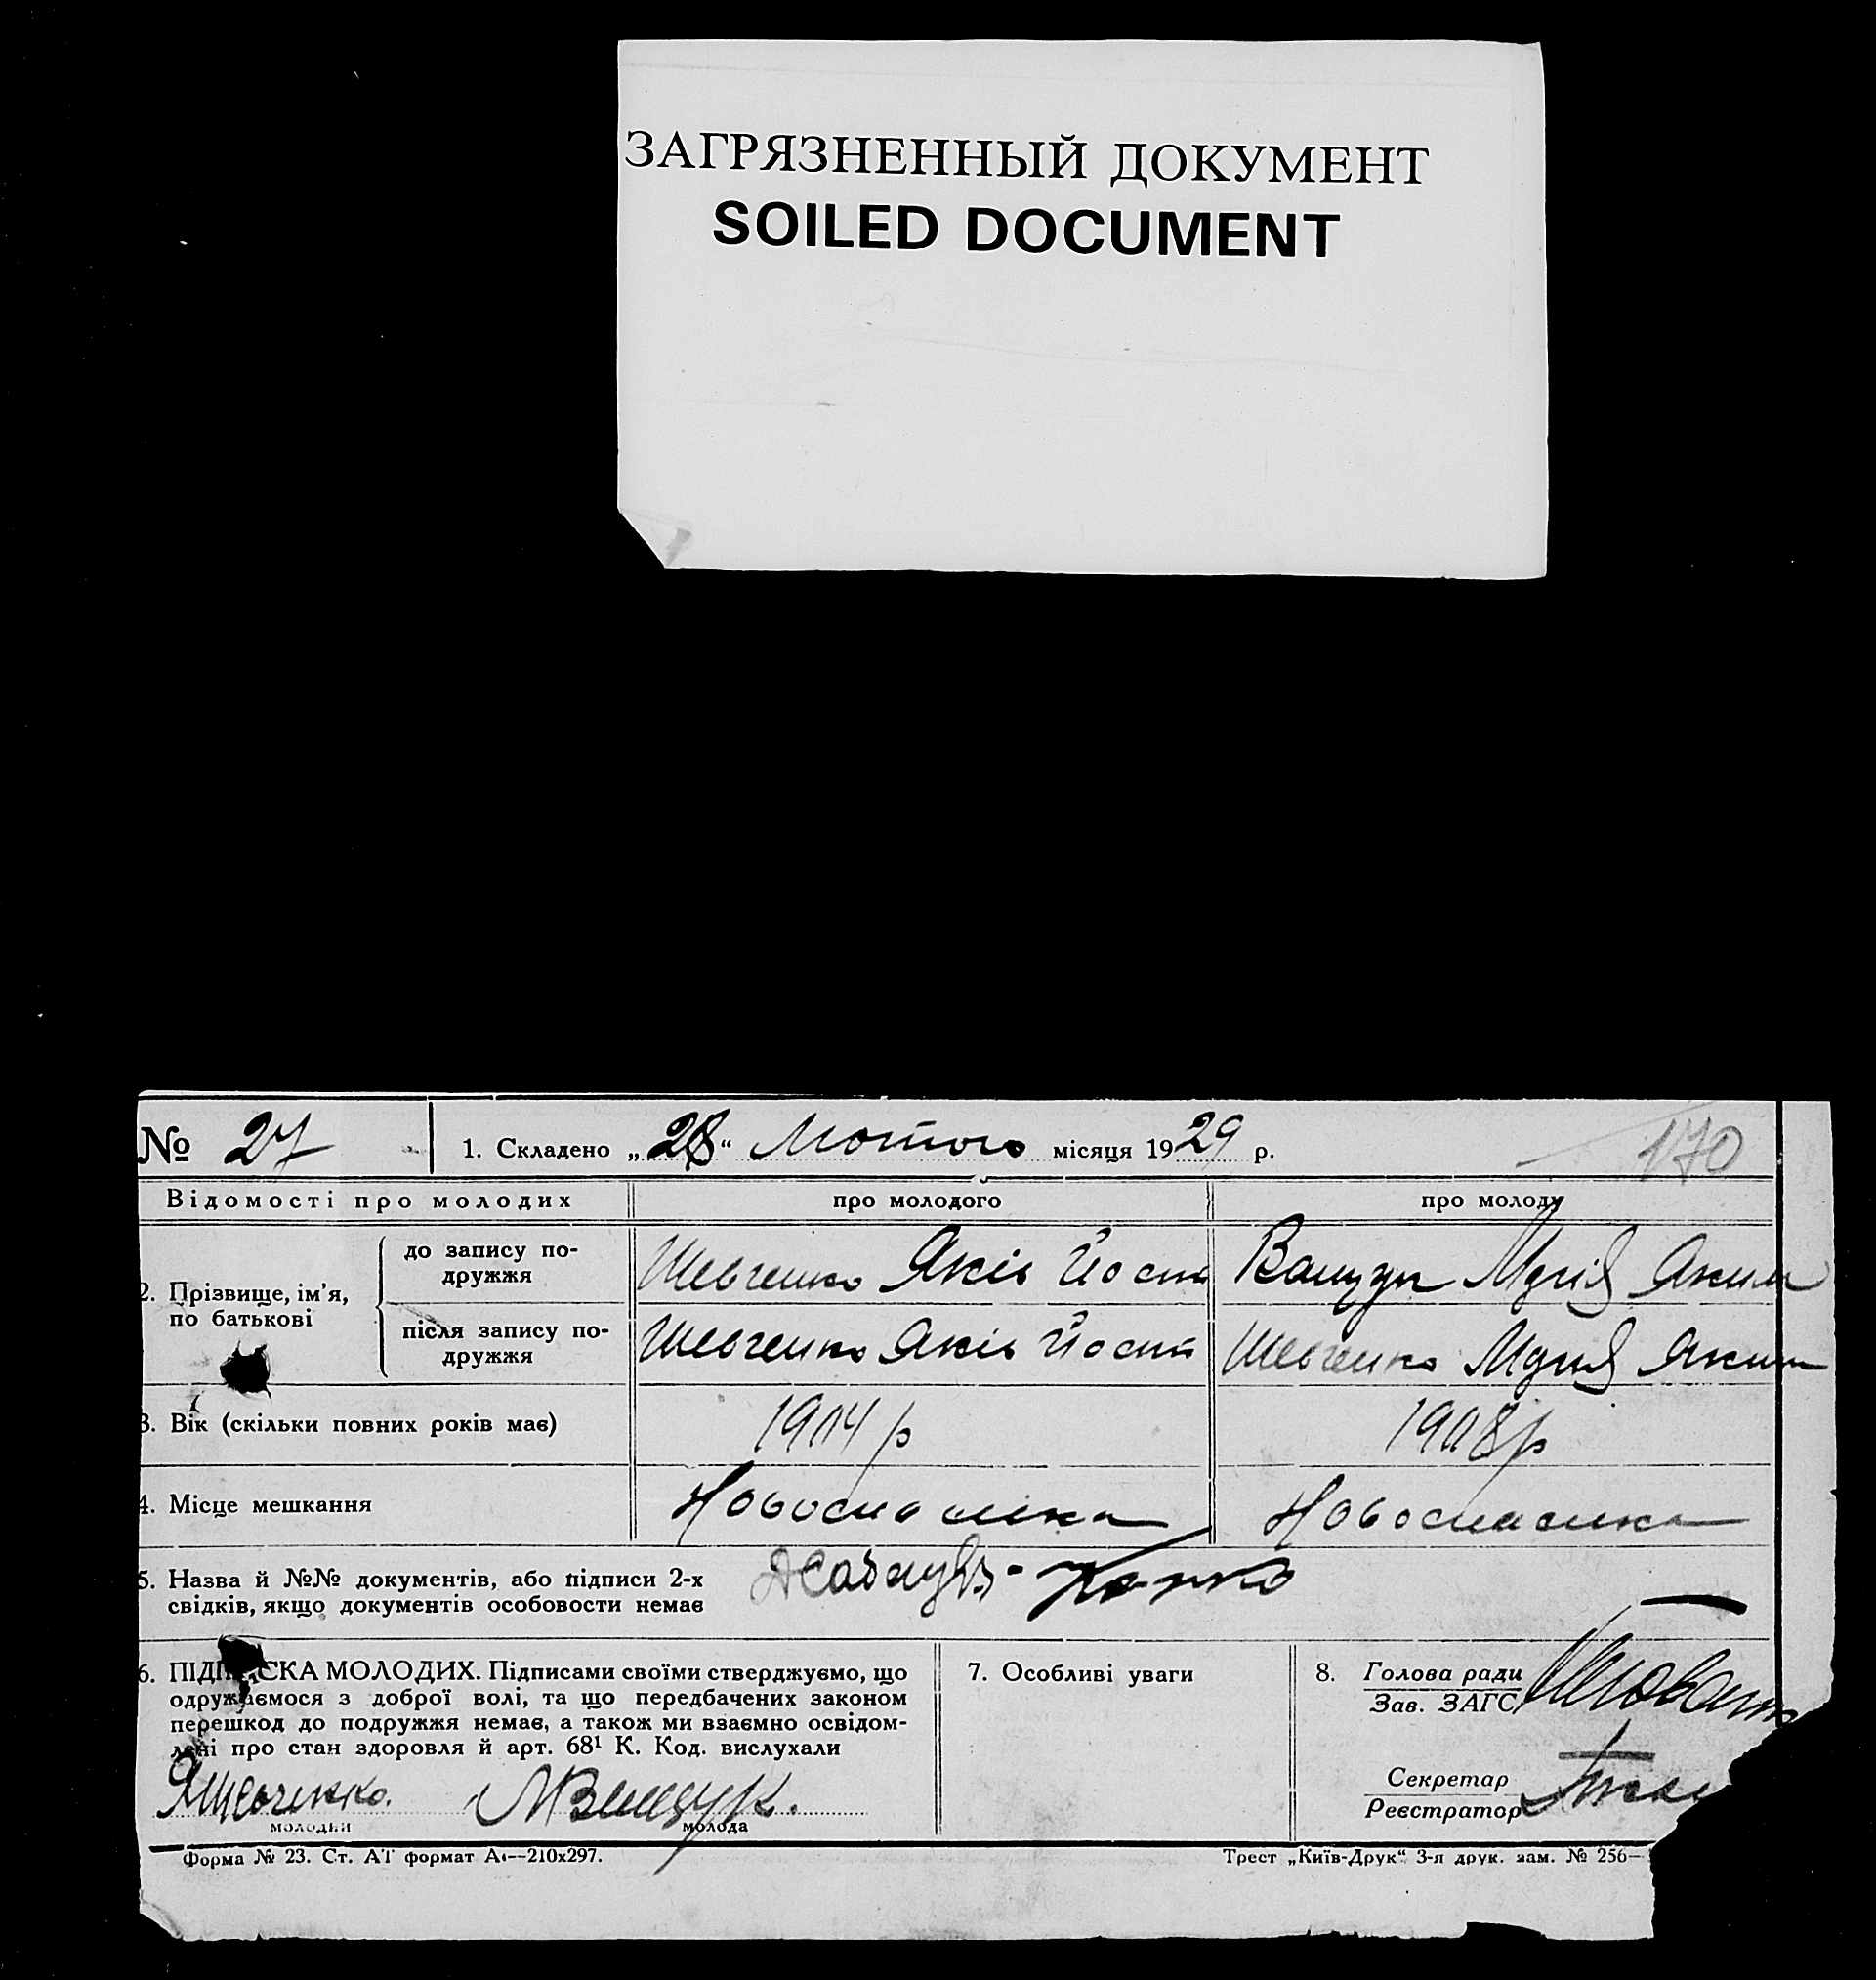 ЗАГРЯЗНЕННЫЙ ДОКУМЕНТ
SOILED DOCUMENT
№ 27
1. Складено „28“ Лютого місяця 1929 р.
170
Відомості про молодих
про молодого
про молоду
2. Прізвище, ім'я, по батькові
до запису по-
дружжя
Шевченко Яків Йосип
Ващук Марія Яким
після запису по-
дружжя
Шевченко Яків Йосип
Шевченко Марія Яким
3. Вік (скільки повних років має)
1904 р
1908 р
4. Місце мешкання
Новоспаська
Новоспаська
5. Назва й №№ документів, або підписи 2-х
свідків, якщо документів особовости немає
6. ПІДПИСКА МОЛОДИХ. Підписами своїми стверджуємо, що
одружаємося з доброї волі, та що передбачених законом
перешкод до подружжя немає, а також ми взаємно освідом-
лені про стан здоровля й арт. 68¹ К. Код. вислухали
ЯШевченко.
МВащук.
молодий
молода
7. Особливі уваги
8. Голова ради
Зав. ЗАГС
Секретар
Реєстратор
Форма № 23. Ст. АТ формат А4—210х297.
Трест „Київ-Друк“ 3-я друк. зам. № 256—